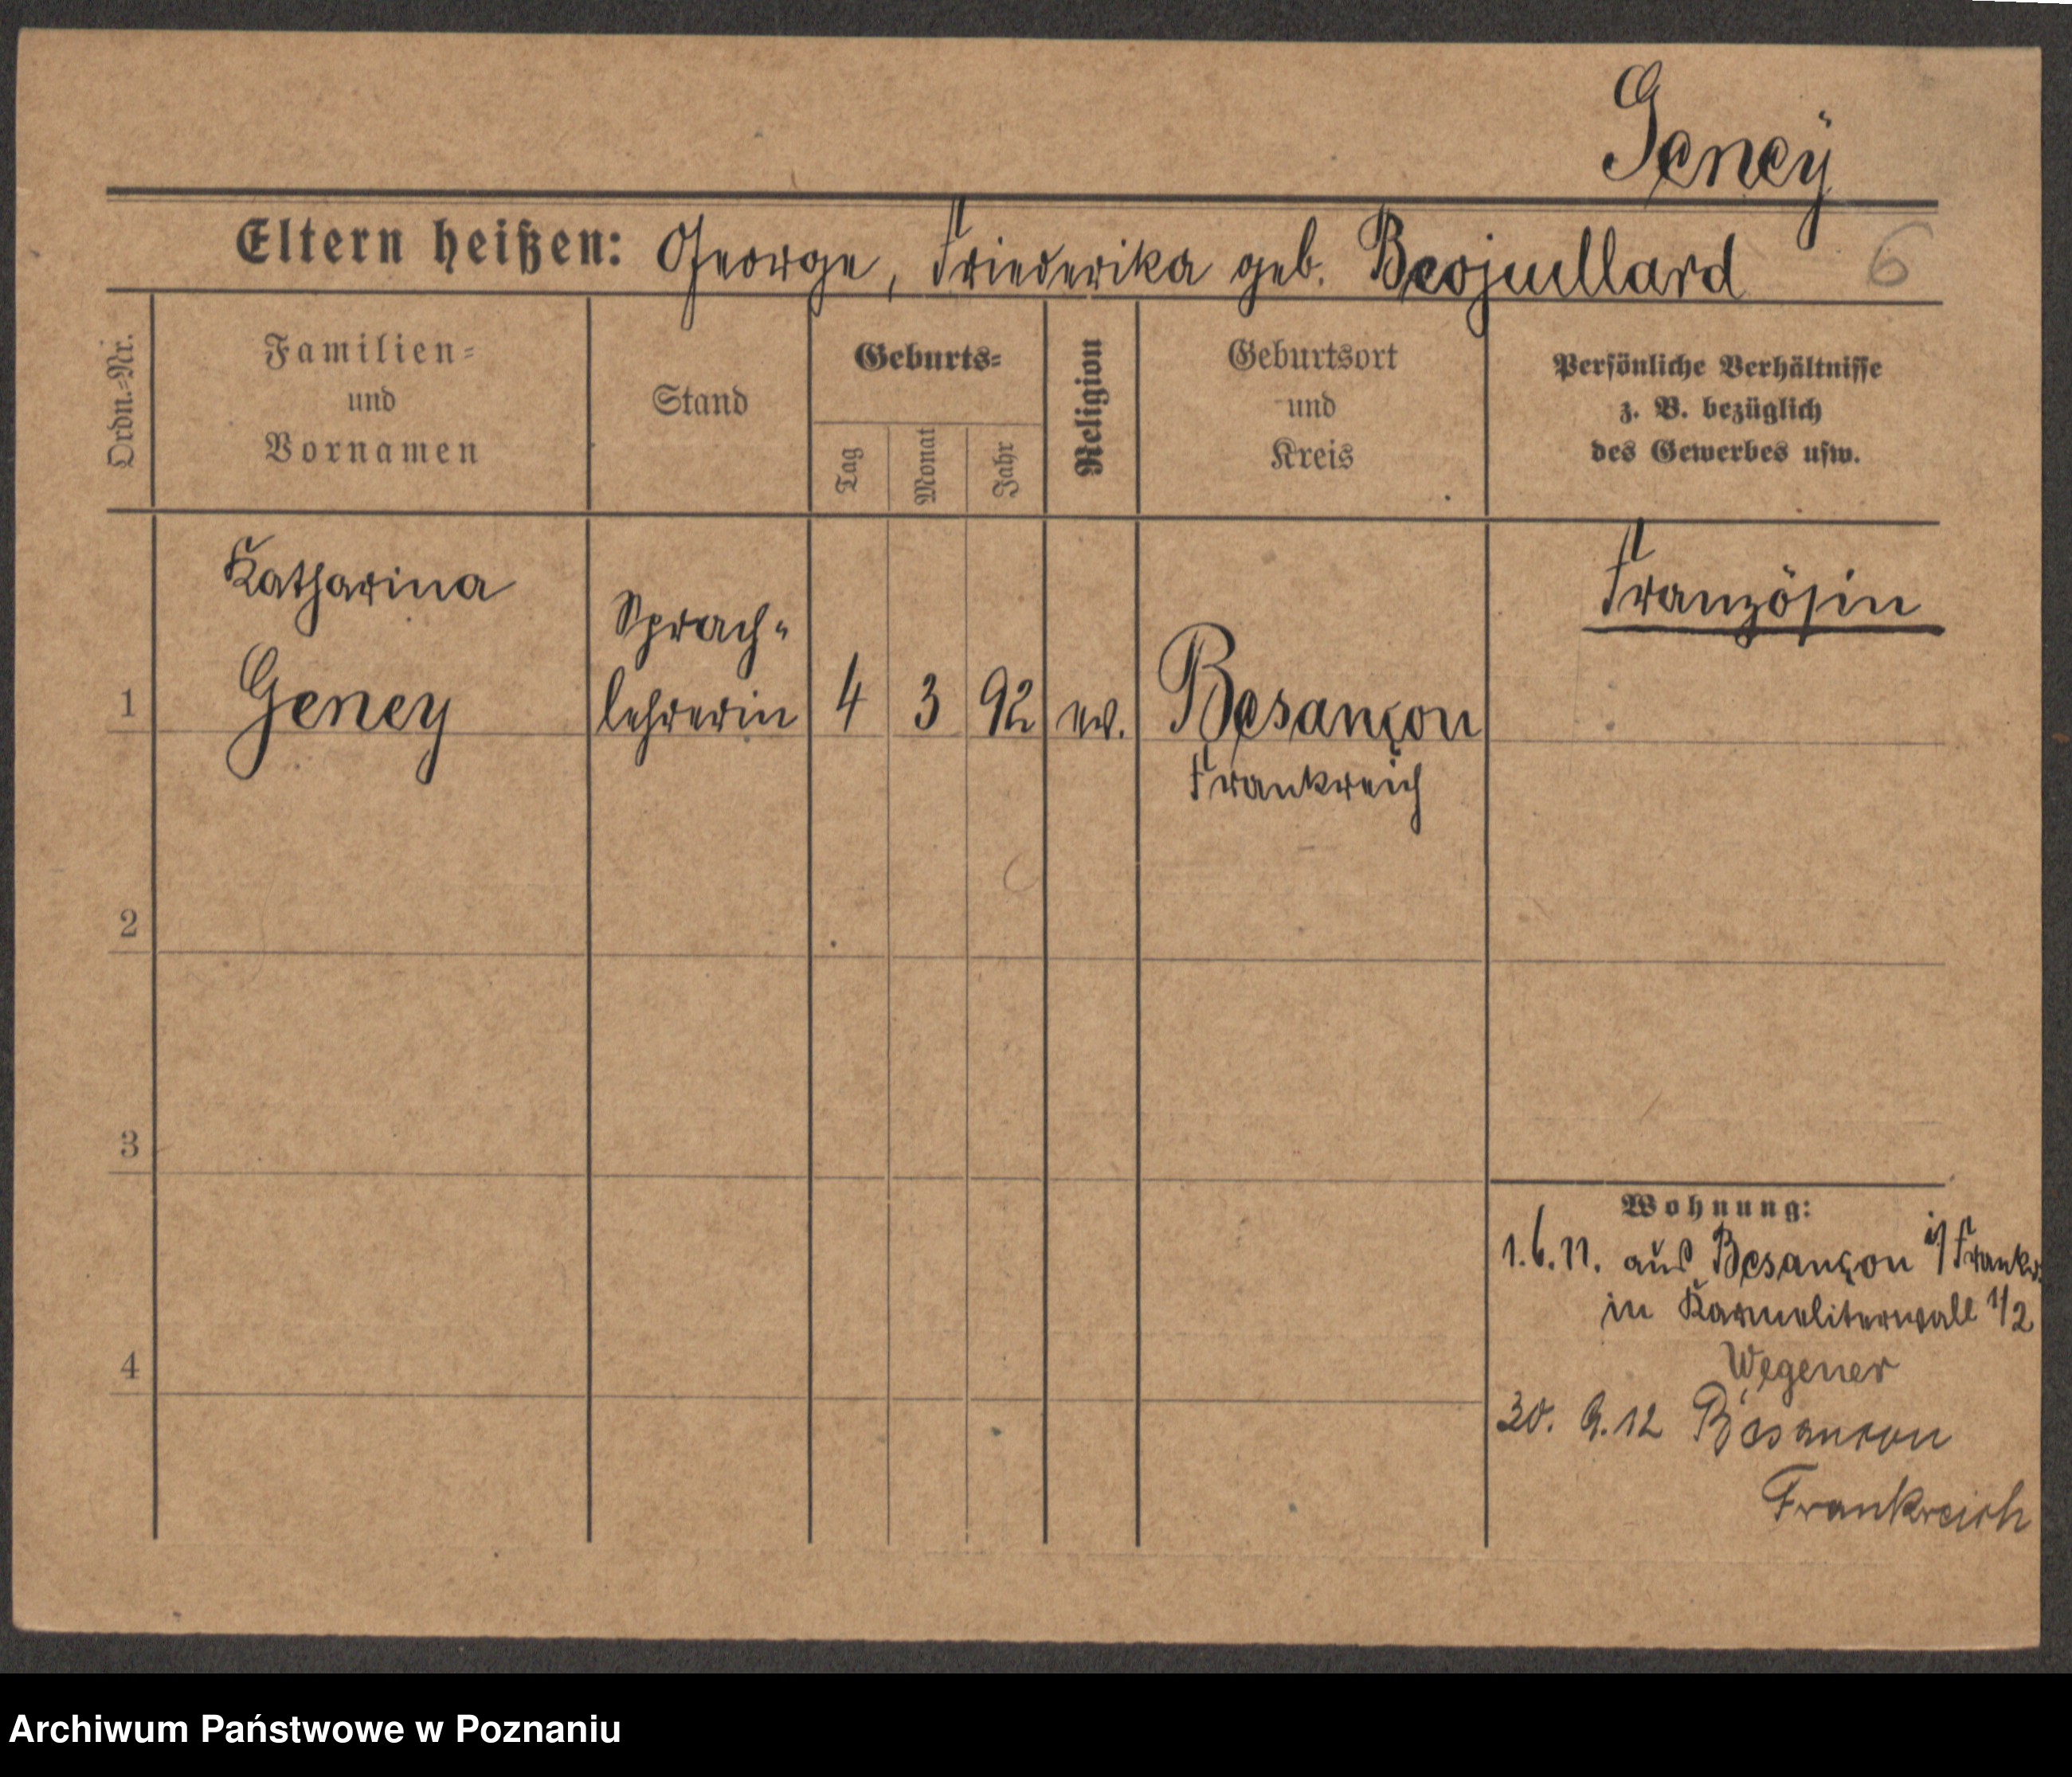 Geney
Eltern heißen: George, Friederika geb. Beojuillard
6
Ordn.-Nr.
Familien-
und
Vornamen
Stand
Geburts-
Tag
Monat
Jahr
Religion
Geburtsort
und
Kreis
Persönliche Verhältnisse
z. B. bezüglich
des Gewerbes usw.
1
Katharina
Geney
Sprach-
lehrerin
4
3
92
ev.
Besançon
Frankreich
Französin
2
3
4
Wohnung:
1.6.11. aus Besançon i/Frankr.
in Karmeliterwall 1/2
Wegener
30. 9.12 Besancon
Frankreich
Archiwum Państwowe w Poznaniu